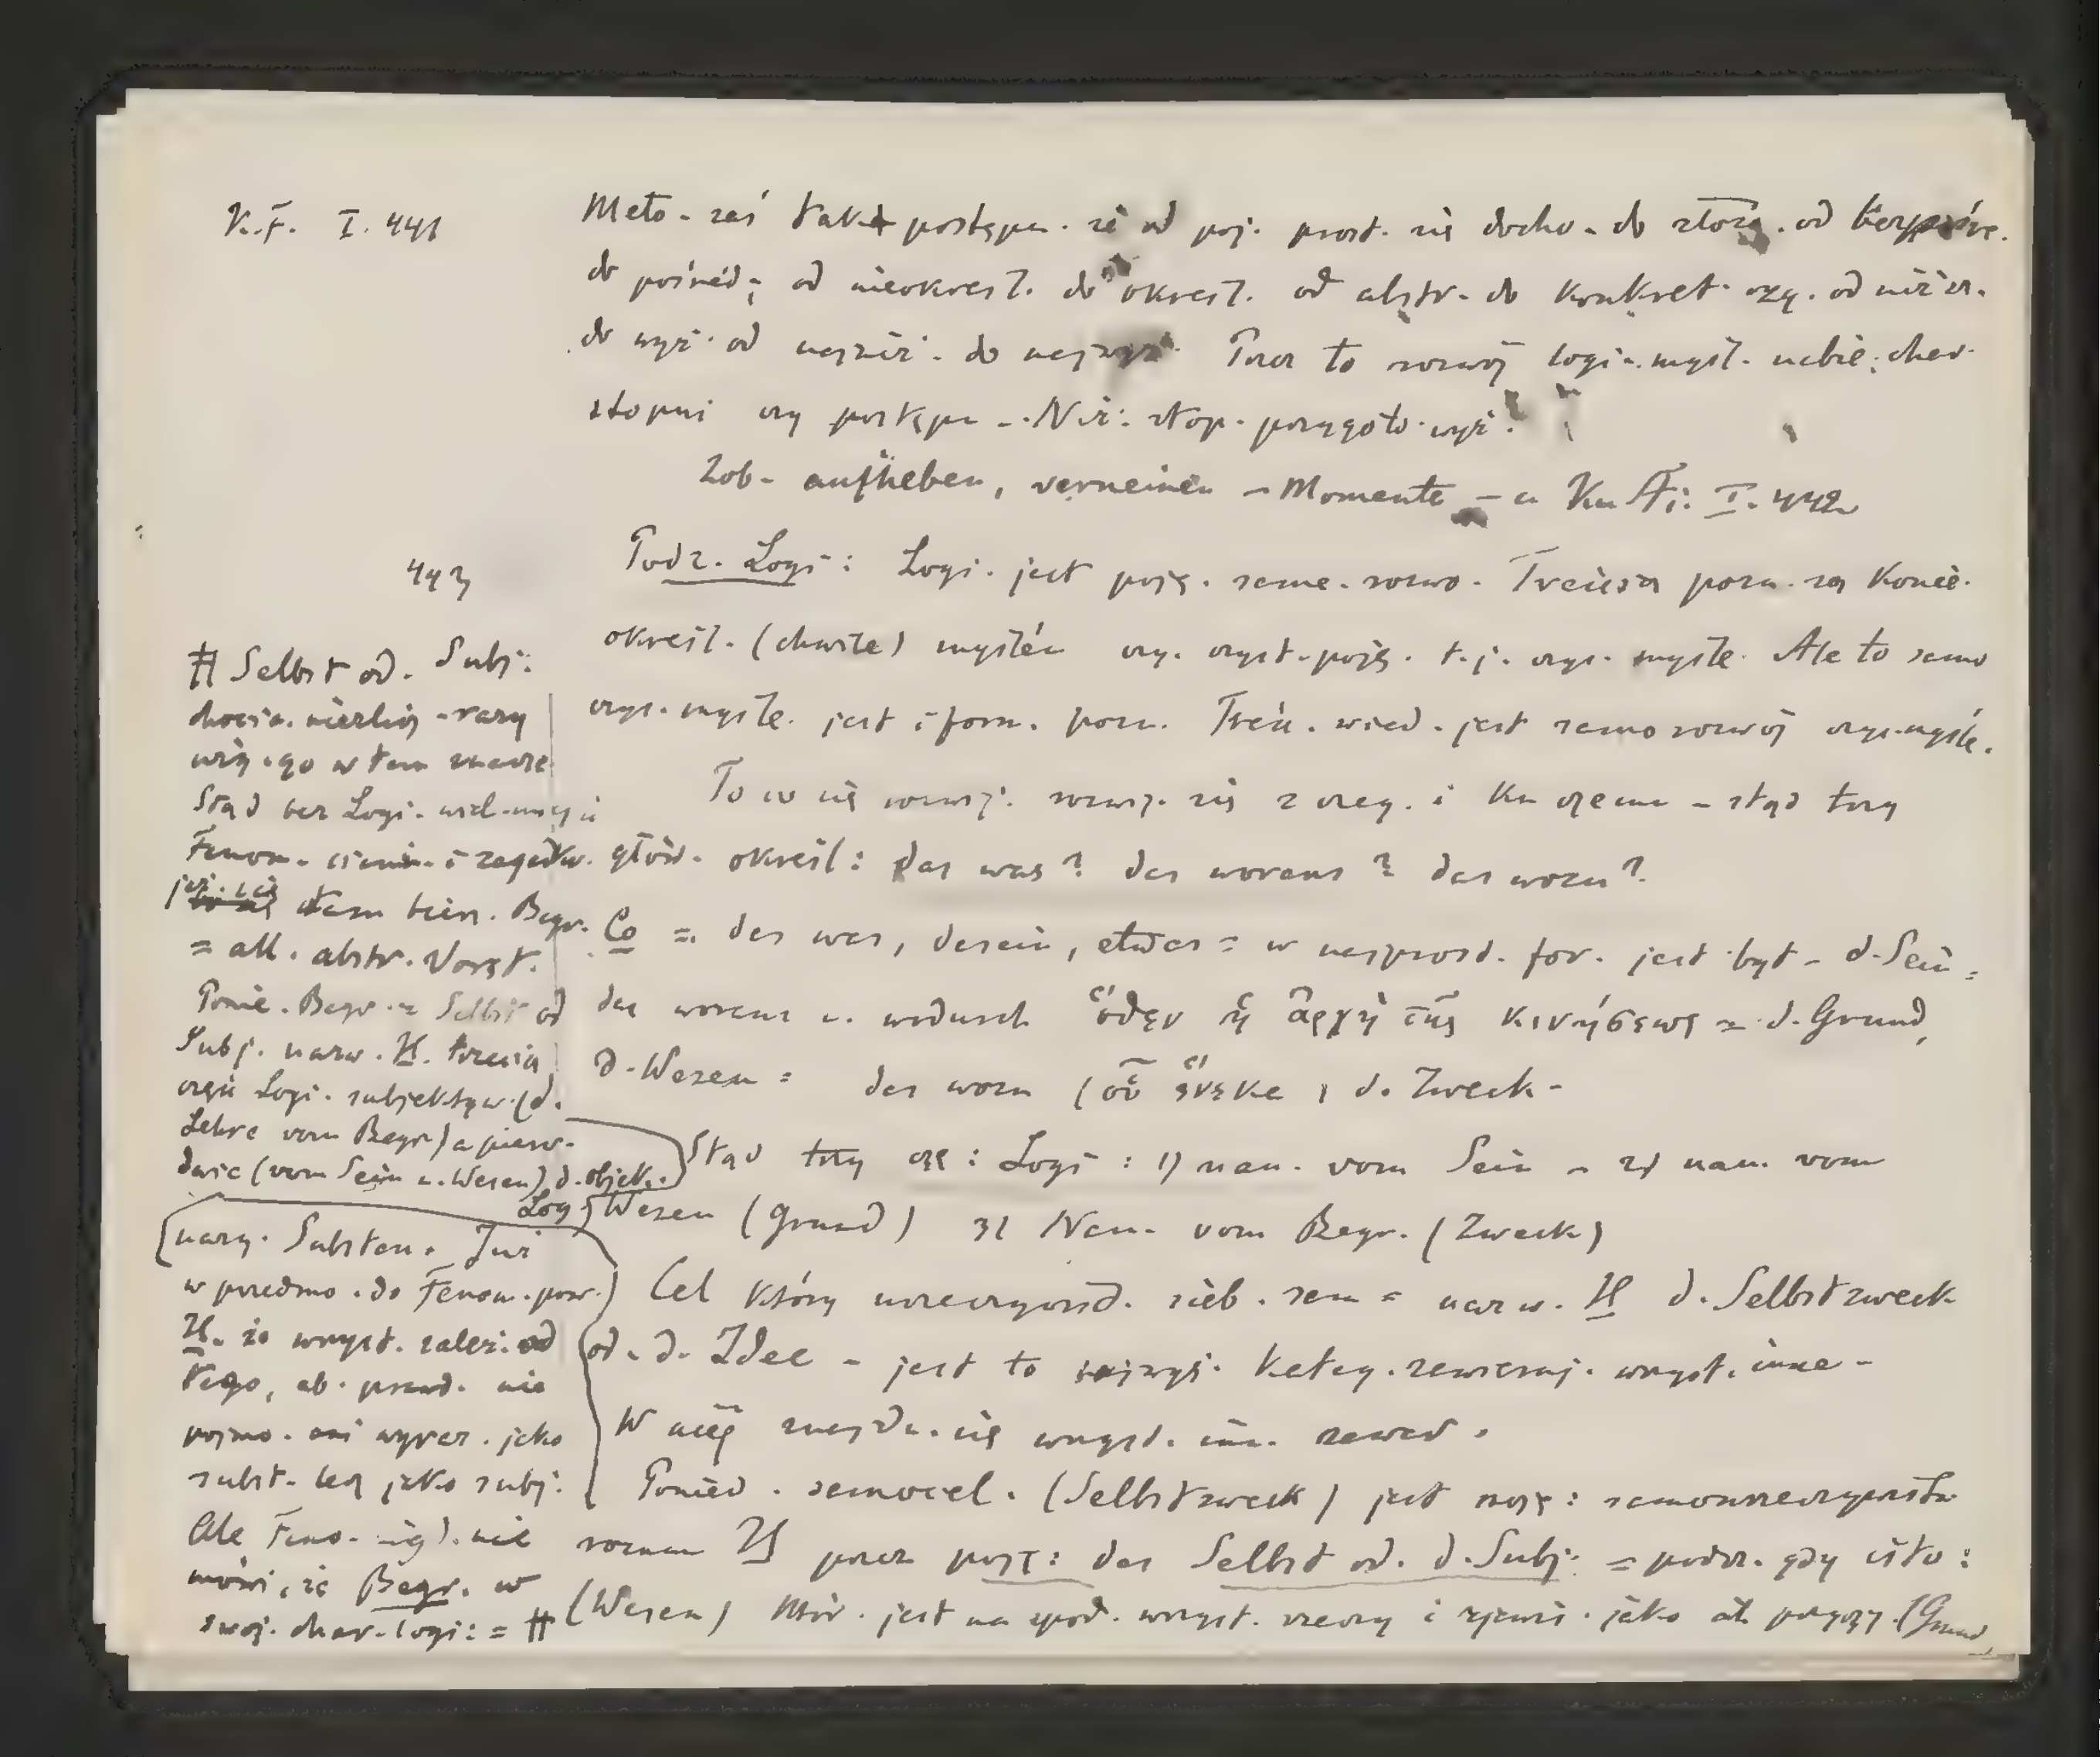 K.F. I. 441
Meto- zaś tak postępu. że od poj. prost. się docho- do złoż. od bezpośre.
do pośred; od nieokreśl. do określ. od abstr. do konkret. czy. od niższ.
do wyż. od najniż. do najwyż. Przez to rozwój logi. myśl. nabie. char.
stopni czy postępu -. Niż. stop. przygoto. wyż.
Zob- aufheben, verneinen - Momente - u Ku Fi. I. 442
443
Podz. Logi: Logi. jest poję. same. rozwo. Treścią pozn. są konie.
określ. (chwile) myśle czy. czyst. poję. t.j. czys. myśle. Ale to samo
czys. myśle. jest i form. pozn. Treś. wied. jest samorozwój czys. myśle.
To co się rozwij. rozwij. się z czeg. i ku czemu - stąd trzy
głów. określ: das was? das woraus? das wozu?
Co = das was, dasein, etwas = w najprost. for. jest byt - d. Sein =
das woraus u. wodurch ὅθεν ἡ ἀρχὴ τῆς κινήσεως = d. Grund,
d. Wesen = das wozu (οὗ ἕνεκα) d. Zweck -
Stąd trzy czę: Logi: 1) nau. vom Sein - 2) nau. vom
Wesen (Grund) 3) Nau. vom Begr. (Zweck)
Cel który urzeczywist. sieb. sam = nazw. H d. Selbstzweck
od. d. Idee - jest to najwyż. kateg. zawieraj. wszyst. inne -
W niej znajdu. się wszyst. inn. zawar.
Ponied. samocel. (Selbstzweck) jest poję: samourzeczywistn.
rozum H przez poję: das Selbst od. d. Subj. = podcz. gdy isto:
(Wesen) któr. jest na spod. wszyst. rzeczy i zjawi. jako ich przyczy. (Grund)
# Selbst od. Subj:
Stąd bez Logi.
Fenom. i zagadkw.
tem Begr.
= all. abstr. Vorst.
Ponie. Begr. = Selbst od
Subj. nazw. H. trzecią
częś Logi. subjektyw. (d.
Lehre vom Begr) a pierw.
dwie (vom Sein u. Wesen) d. objek.
Log
nazy. Substan. Już
w przedmo. do Fenom. pow.
H. że wszyst. zależ. od
tego, ab. prawd. nie
pojmo. ani wyraz. jako
subst. lecz jako subj:
Ale Feno. nie
mówi, że Begr. w
swoj. char. logi: = #